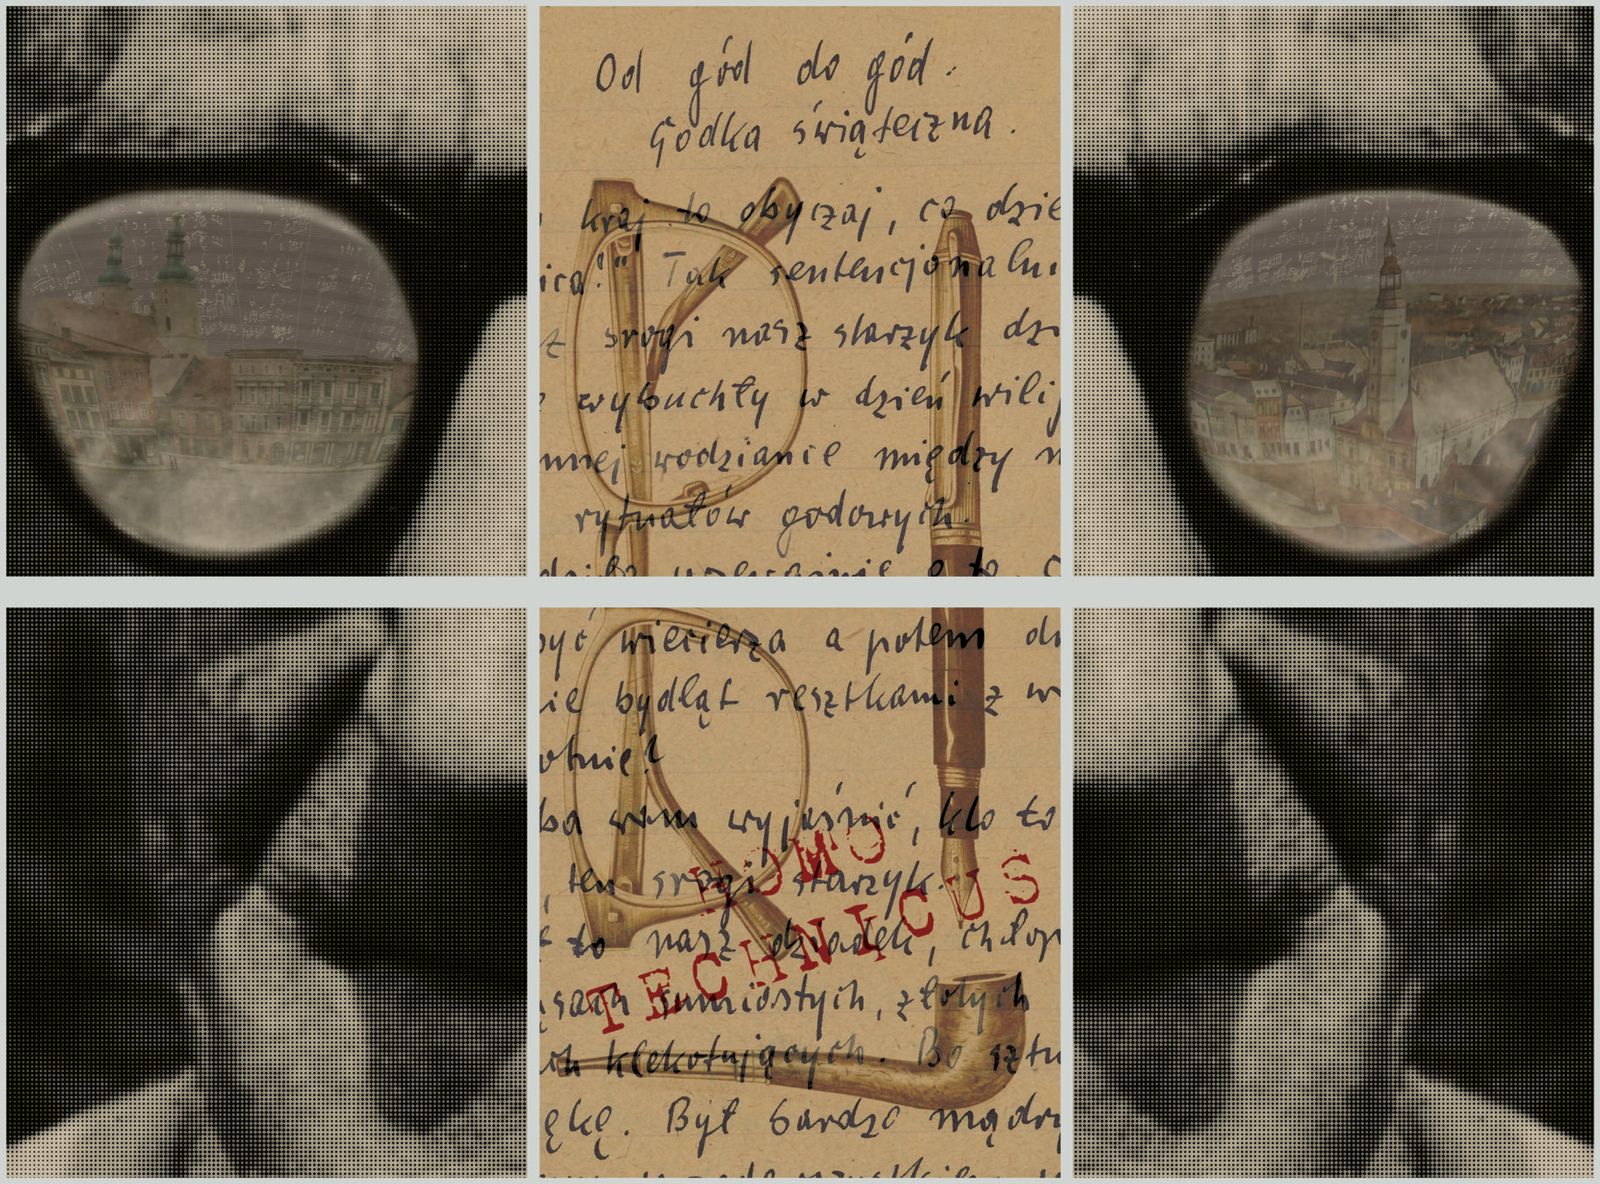 Od gód do gód.
Godka świąteczna.
kraj to obyczaj, co dzie
ica!" Tak sentencjonalni
z srogi nasz starzyk dzi
wybuchły w dzień wilij
nnej wodziance między n
rytuałów godowych.
być wieczerza a potem du
ie bydląt resztkami z w
otnie?
ba wam wyjaśnić, kto to
, ten srogi starzyk.
to nasz dziadek, chłop
ąsach sumiastych, złotych
ch klekotujących. Bo sztu
ękę. Był bardzo mądry
HOMO
TECHNICUS